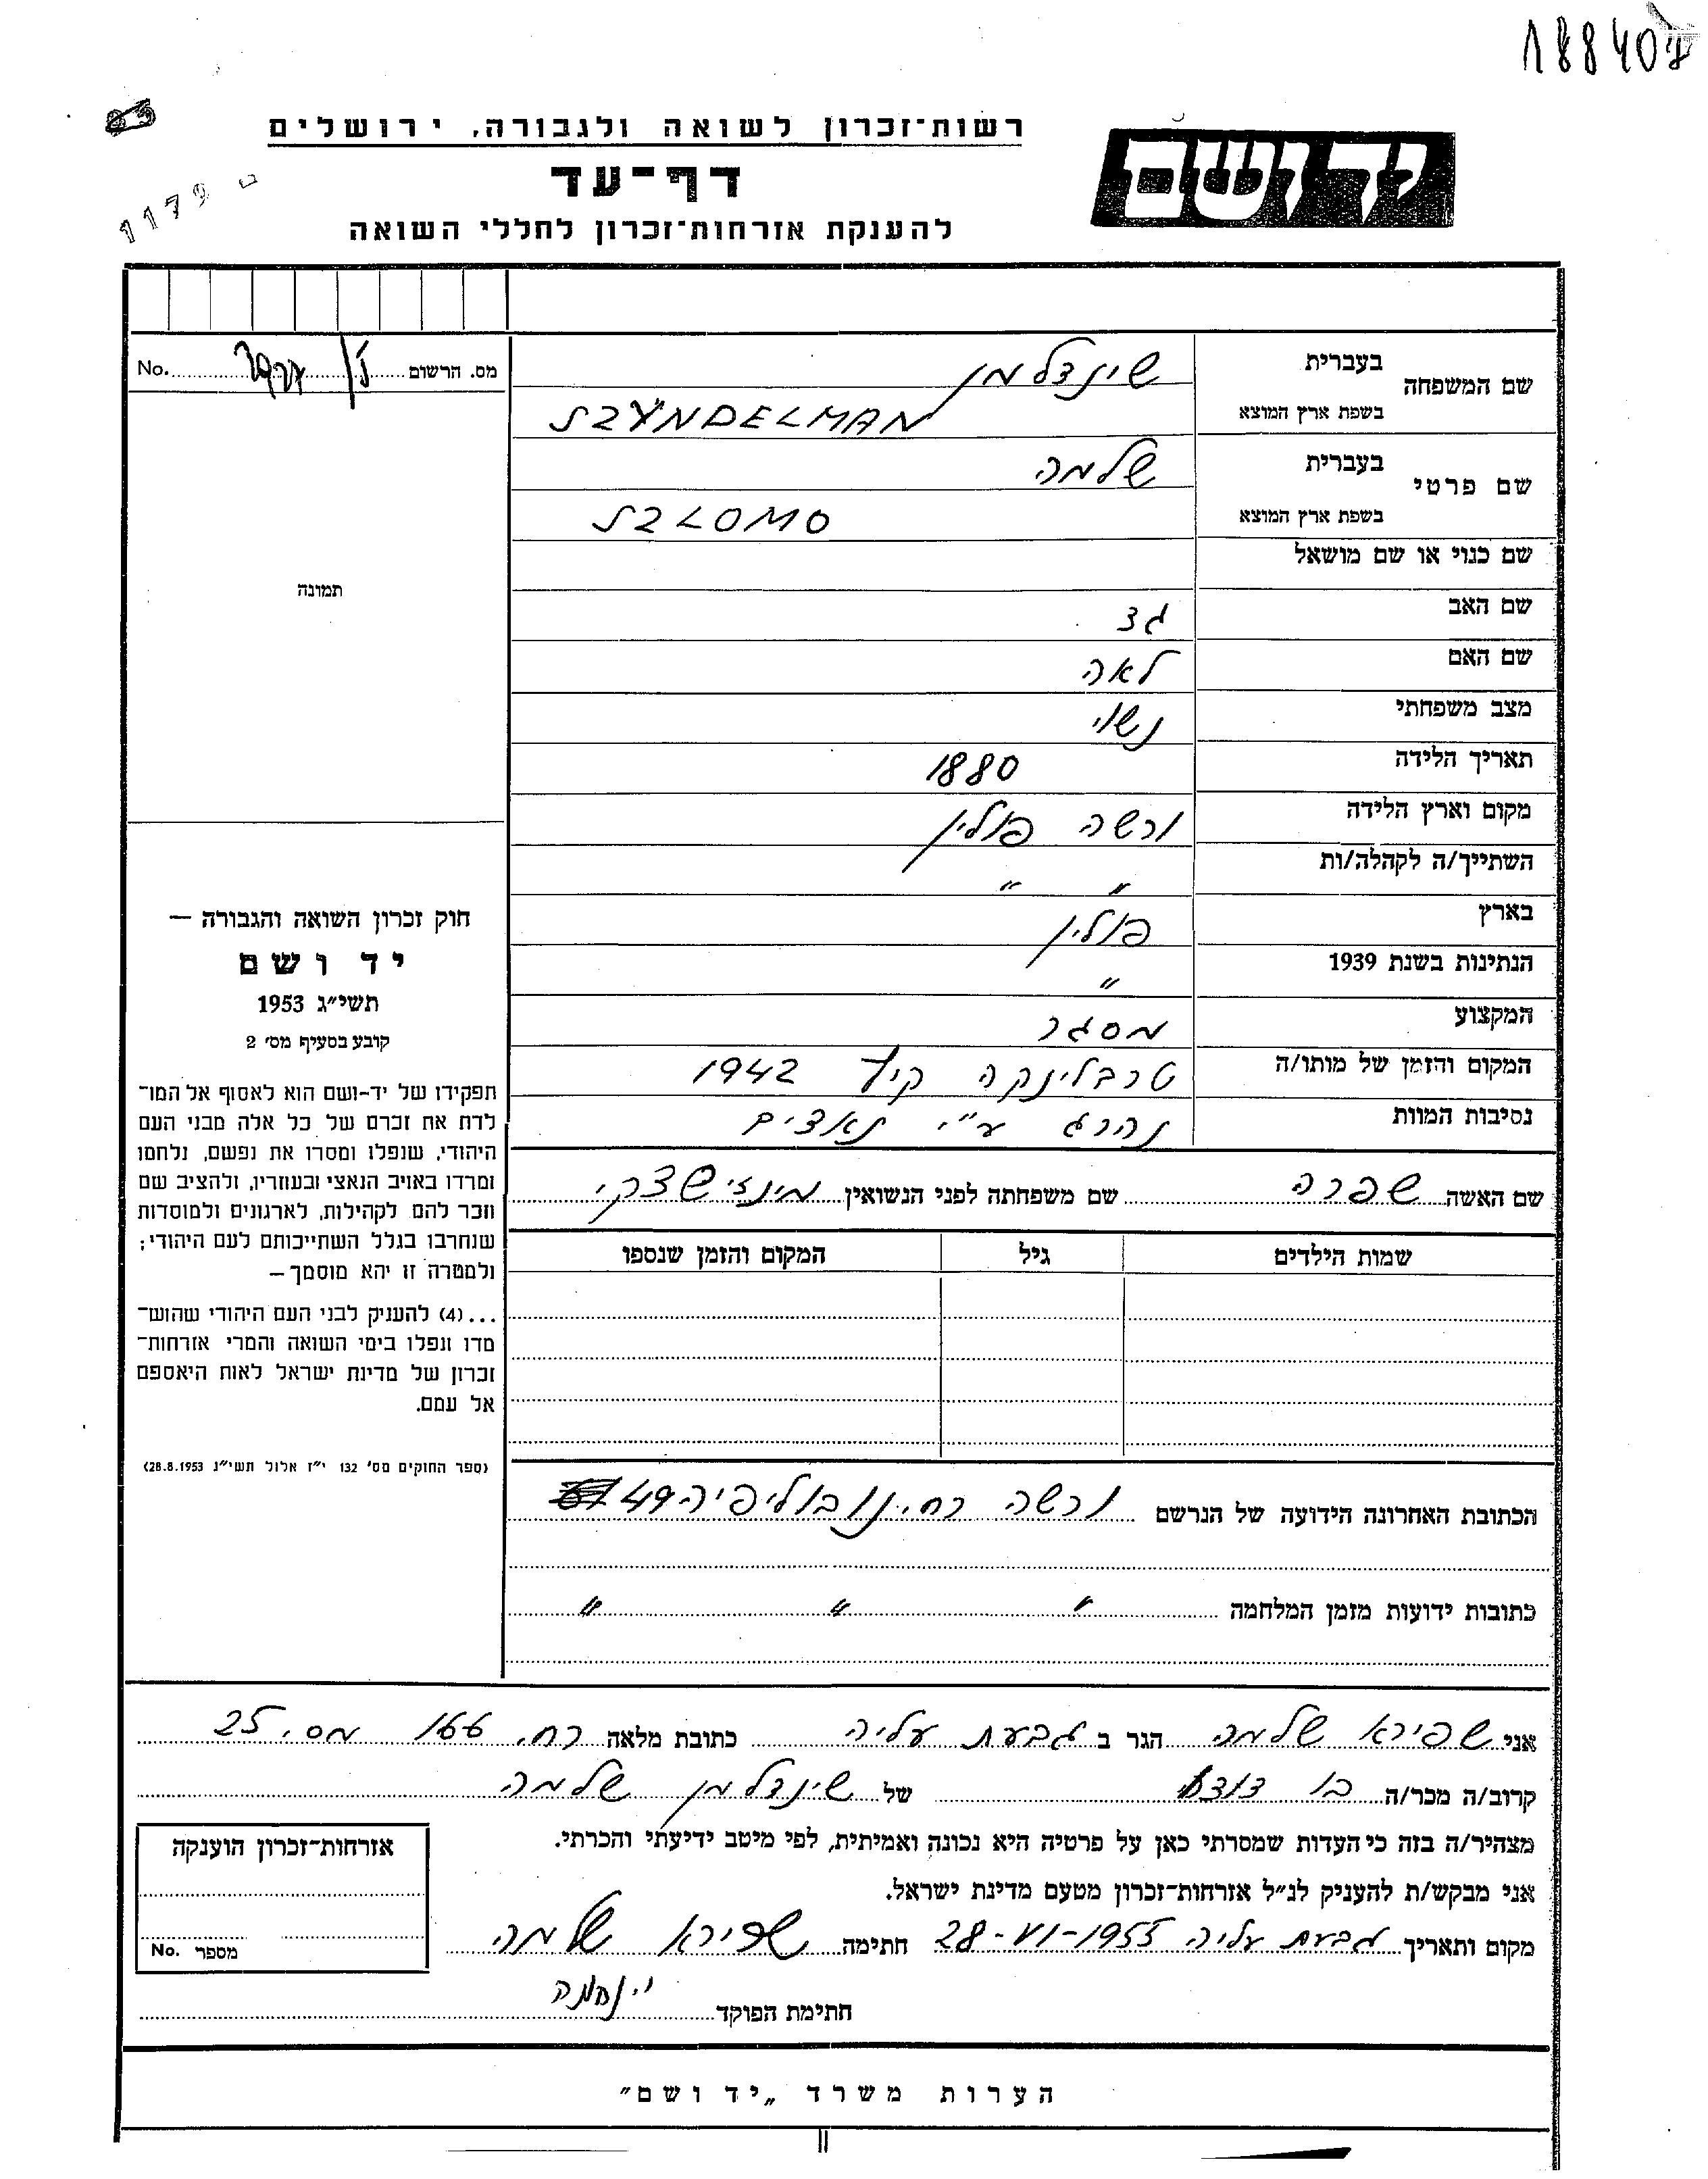 188407
רשות־זכרון לשואה ולגבורה, ירושלים
יד ושם
דף־עד
1179
להענקת אזרחות־זכרון לחללי השואה
שם המשפחה
בעברית שינדלמן
בשפת ארץ המוצא SZYNDELMAN
מס. הרשום No.
שם פרטי
בעברית שלמה
בשפת ארץ המוצא SZLOMO
שם כנוי או שם מושאל
תמונה
שם האב גצ
שם האם לאה
מצב משפחתי נשוי
תאריך הלידה 1880
מקום וארץ הלידה ורשה פולין
השתייך/ה לקהלה/ות " "
בארץ פולין
הנתינות בשנת 1939 "
המקצוע מסגר
המקום והזמן של מותו/ה טרבלינקה קיץ 1942
נסיבות המוות נהרג ע"י נאצים
שם האשה שפרה שם משפחתה לפני הנשואין
שמות הילדים גיל המקום והזמן שנספו
הכתובת האחרונה הידועה של הנרשם ורשה רח. נובוליפיה 49
כתובות ידועות מזמן המלחמה " " "
חוק זכרון השואה והגבורה —
יד ושם
תשי״ג 1953
קובע בסעיף מס׳ 2
תפקידו של יד-ושם הוא לאסוף אל המו־
לדת את זכרם של כל אלה מבני העם
היהודי, שנפלו ומסרו את נפשם, נלחמו
ומרדו באויב הנאצי ובעוזריו, ולהציב שם
וזכר להם לקהילות, לארגונים ולמוסדות
שנחרבו בגלל השתייכותם לעם היהודי;
ולמטרה זו יהא מוסמך —
...(4) להעניק לבני העם היהודי שהוש־
מדו ונפלו בימי השואה והמרי אזרחות־
זכרון של מדינת ישראל לאות היאספם
אל עמם.
(ספר החוקים מס׳ 132 י״ז אלול תשי״ג 28.8.1953)
אני שפירא שלמה הגר ב גבעת עליה כתובת מלאה רח. 166 מס. 25
קרוב/ה מכר/ה בן דוד של שינדלמן שלמה
מצהיר/ה בזה כי העדות שמסרתי כאן על פרטיה היא נכונה ואמיתית, לפי מיטב ידיעתי והכרתי.
אני מבקש/ת להעניק לנ״ל אזרחות־זכרון מטעם מדינת ישראל.
מקום ותאריך גבעת עליה 28-VI-1955 חתימה שפירא שלמה
חתימת הפוקד
אזרחות־זכרון הוענקה
מספר No.
הערות משרד „יד ושם״